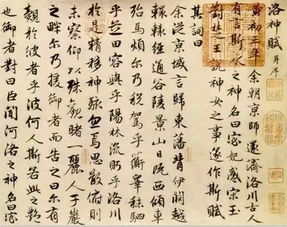 洛神賦 并序
黃初三年余朝京師還濟洛川古人
有言斯水之神名曰宓妃感宋玉
對楚王說神女之事遂作斯賦
其詞曰
余從京域言歸東藩背伊闕越
轘轅經通谷陵景山日既西傾車
殆馬煩爾乃稅駕乎蘅皋秣駟
乎芝田容與乎陽林流眄乎洛川
於是精移神駭忽焉思散俯則
未察仰以殊觀睹一麗人于巖
之畔爾乃援御者而告之曰爾有
覿於彼者乎彼何人斯若此之艷
也御者對曰臣聞河洛之神名曰宓